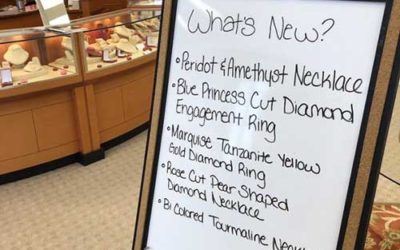 What's New?
• Peridot & Amethyst Necklace
• Blue Princess Cut Diamond
Engagement Ring
• Marquise Tanzanite Yellow
Gold Diamond Ring
• Rose Cut Pear Shaped
Diamond Necklace
• Bi Colored Tourmaline